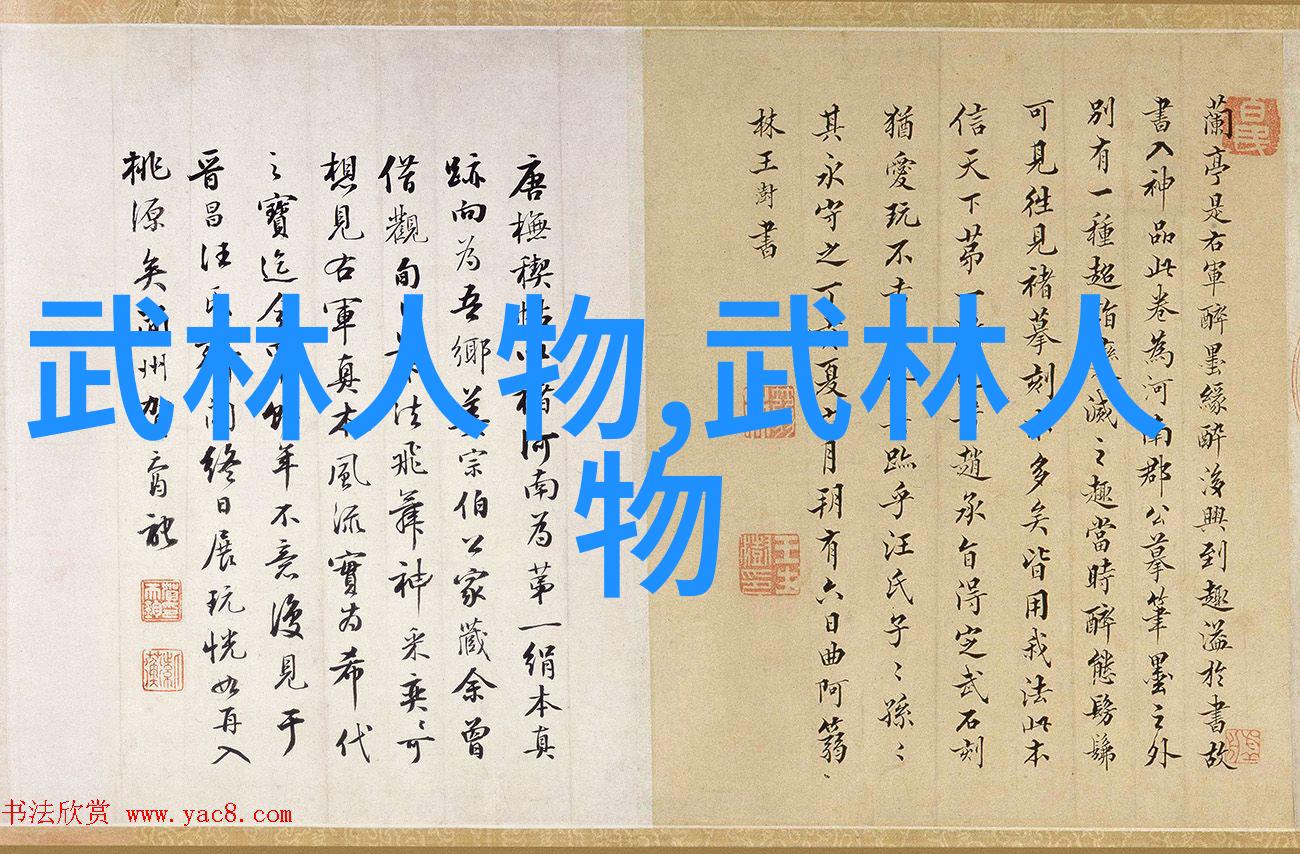 蘭亭是右軍醉墨緣醉後興到趣溢於書故
書入神品此卷為河南郡公摹筆墨之外
別有一種超
滅之趣當時醉態髣髴
可見往見褚摹刻
多矣皆用我法此本
信天下苐一
趙承旨得定武石刻
猶愛玩不去
臨乎汪氏子〻孫〻
其永守之丁亥夏
月朔有六日曲阿篛
林王澍書
唐橅禊帖以褚河南為苐一絹本真
跡向為吾鄉姜宗伯公家藏余曾
借觀旬日
法飛舞神采奕〻可
想見右軍真本風流實為希代
之寶迄今
年不意復見于
晉昌汪氏
閣終日展玩恍如再入
桃源矣
州
武林人物,武林人
物
书法欣赏 www.yac8.com